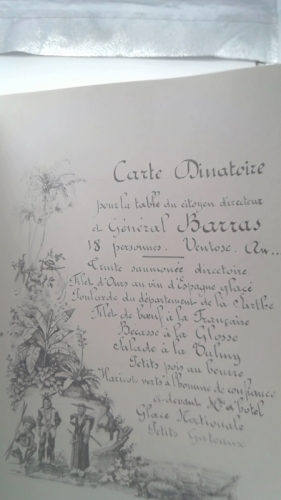 Carte Dinatoire
pour la table du citoyen directeur
et Général Barras
18 personnes. Ventose. An..
Truite saumonée directoire
Filet d'Ours au vin d'Espagne glacé
Poularde du département de la Sarthe
Filet de bœuf à la Française
Becasse à la Glosse
Salade à la Valmy
Petits pois au beurre
Haricots verts à l'homme de confiance
ci-devant Me d'hôtel
Glace Nationale
Petits Gateaux